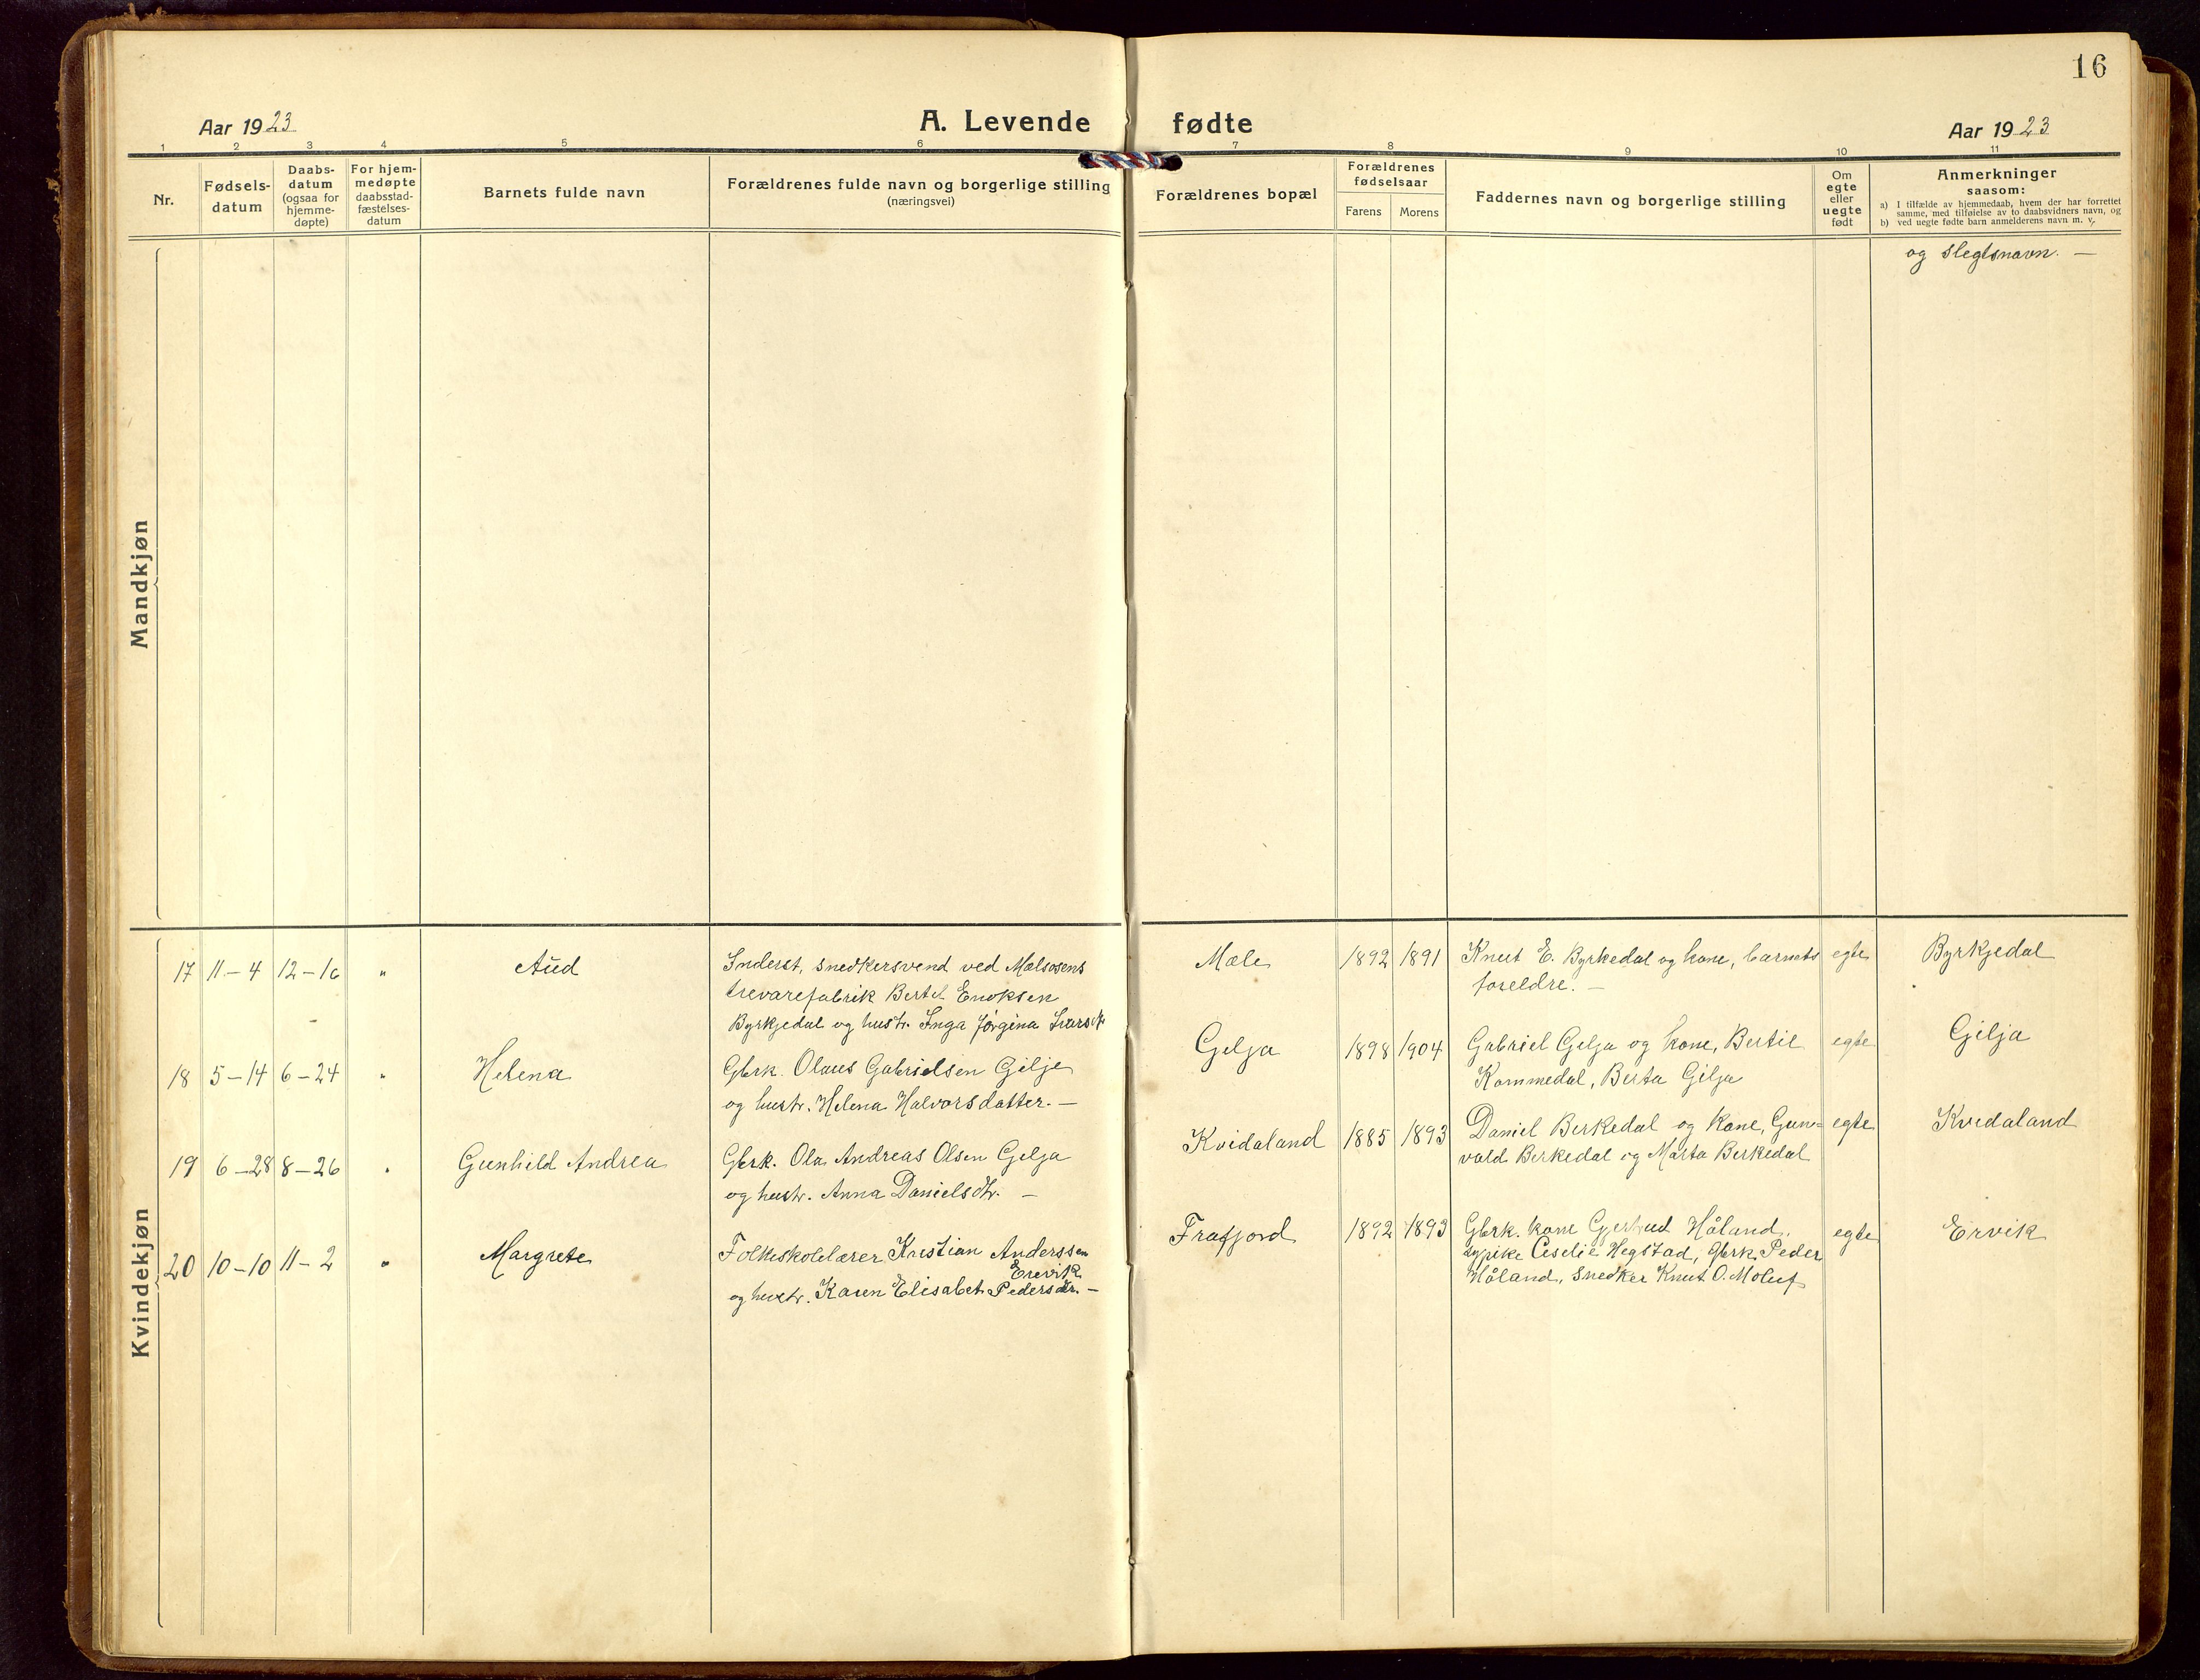 16
Aar 1923
A. Levende fødte
Aar 1923
1 2 3 4 5 6 7 8 9 10 11
Nr.
Fødsels-
datum
Daabs-
datum
(ogsaa for
hjemme-
døpte)
For hjem-
medøpte
daabsstad-
fæstelses-
datum
Barnets fulde navn
Forældrenes fulde navn og borgerlige stilling
(næringsvei)
Forældrenes bopæl
Forældrenes
fødselsaar
Farens Morens
Faddernes navn og borgerlige stilling
Om
egte
eller
uegte
født
Anmerkninger
saasom:
a) I tilfælde av hjemmedaab, hvem der har forrettet
samme, med tilføielse av to daabsvidners navn, og
b) ved uegte fødte barn anmelderens navn m. v.
Mandkjøn
og slegtsnavn. —
Kvindekjøn
17 11-4 12-16 " Aud
Inderst, snedkersvend ved Mælsosens
trevarefabrik Bertel Enoksen
Byrkjedal og hustr. Inga Jørgina
Mæle 1892 1891
Knut E. Byrkedal og kone, barnets
foreldre. —
egte Byrkjedal
18 5-14 6-24 " Helena
Gbrk. Olaus Gabrielsen Gilje
og hustr. Helena Halvorsdatter. —
Gilja 1898 1904
Gabriel Gilja og kone, Bertil
Kommedal, Berta Gilja
egte Gilja
19 6-28 8-26 " Gunhild Andrea
Gbrk. Ola Andreas Olsen Gilja
og hustr. Anna Danielsdtr. —
Kvidaland 1885 1893
Daniel Birkedal og kone, Gun-
vald Birkedal og Marta Birkedal
egte Kvidaland
20 10-10 11-2 " Margrete
Folkeskolelærer Kristian Anderssen
Ervik
og hustr. Karen Elisabet Pedersdtr. —
Frafjord 1892 1893
Gbrk. kone Gjertrud Håland,
sypike Ceselie Hegstad, Gbrk. Peder
Håland, Snedker Knut O. Moluf
egte Ervik